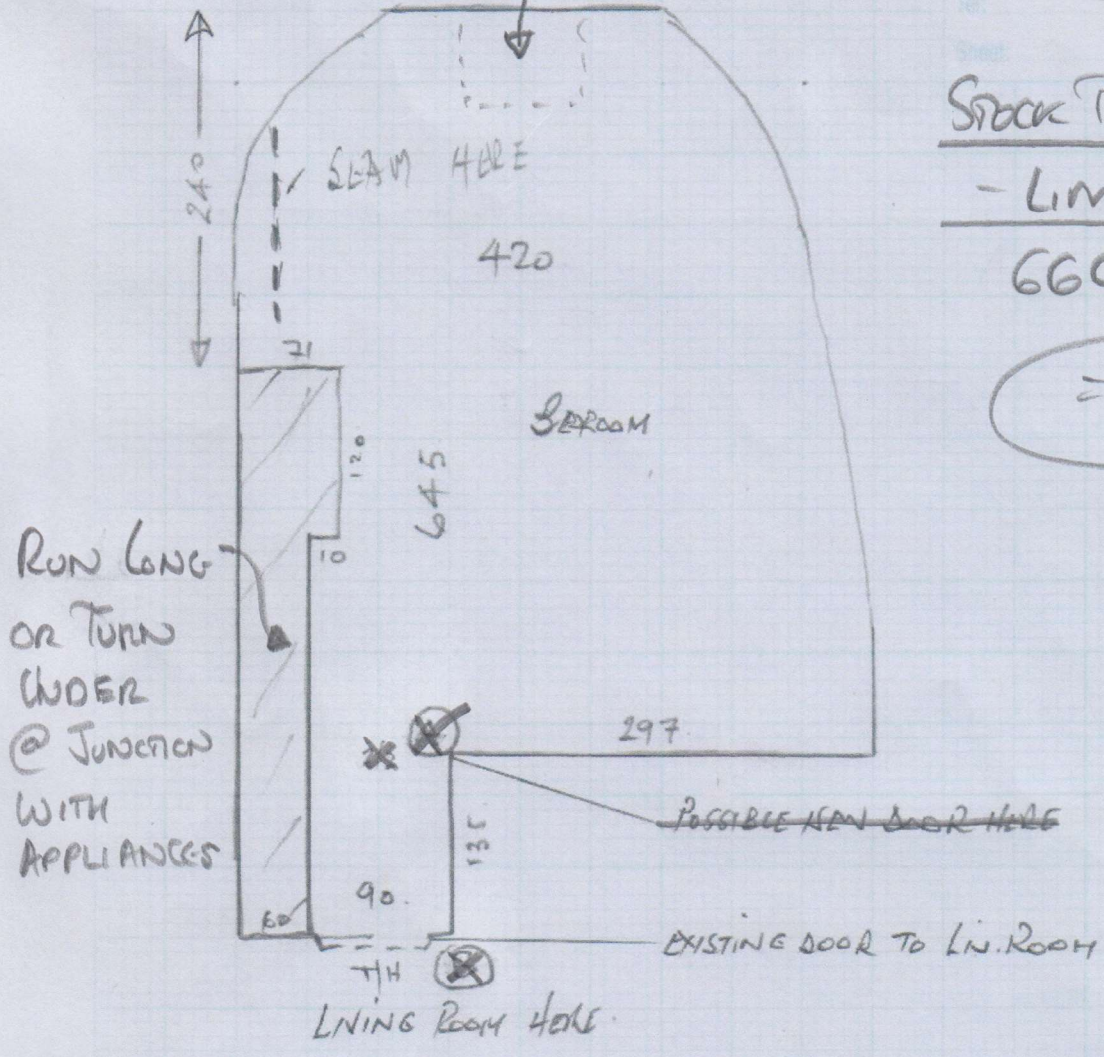 STOCK T
- LIN
660
=
240
SEAM HERE
420
71
BEDROOM
120
645
10
RUN LONG
OR TURN
UNDER
@ JUNCTION
WITH
APPLIANCES
297
POSSIBLE NEW DOOR HERE
135
90.
60
EXISTING DOOR TO LIV. ROOM
T/H
LIVING ROOM HERE.